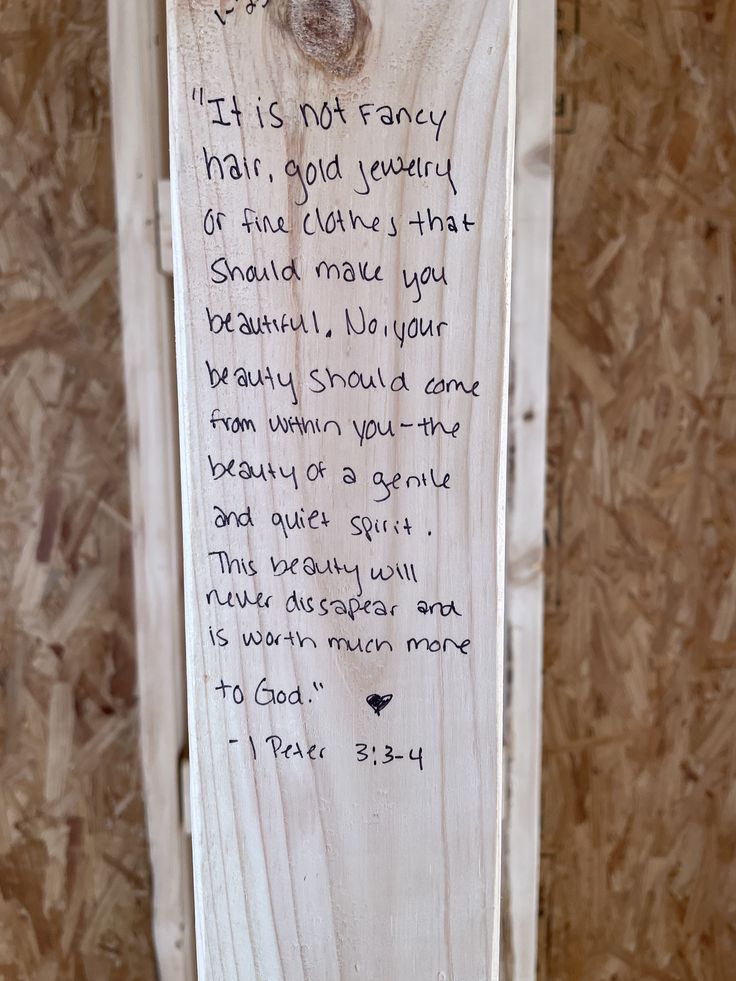 "It is not Fancy
hair, gold jewelry
or fine clothes that
should make you
beautiful. No, your
beauty should come
from within you - the
beauty of a gentle
and quiet spirit.
This beauty will
never dissapear and
is worth much more
to God." ♥
- 1 Peter 3:3-4